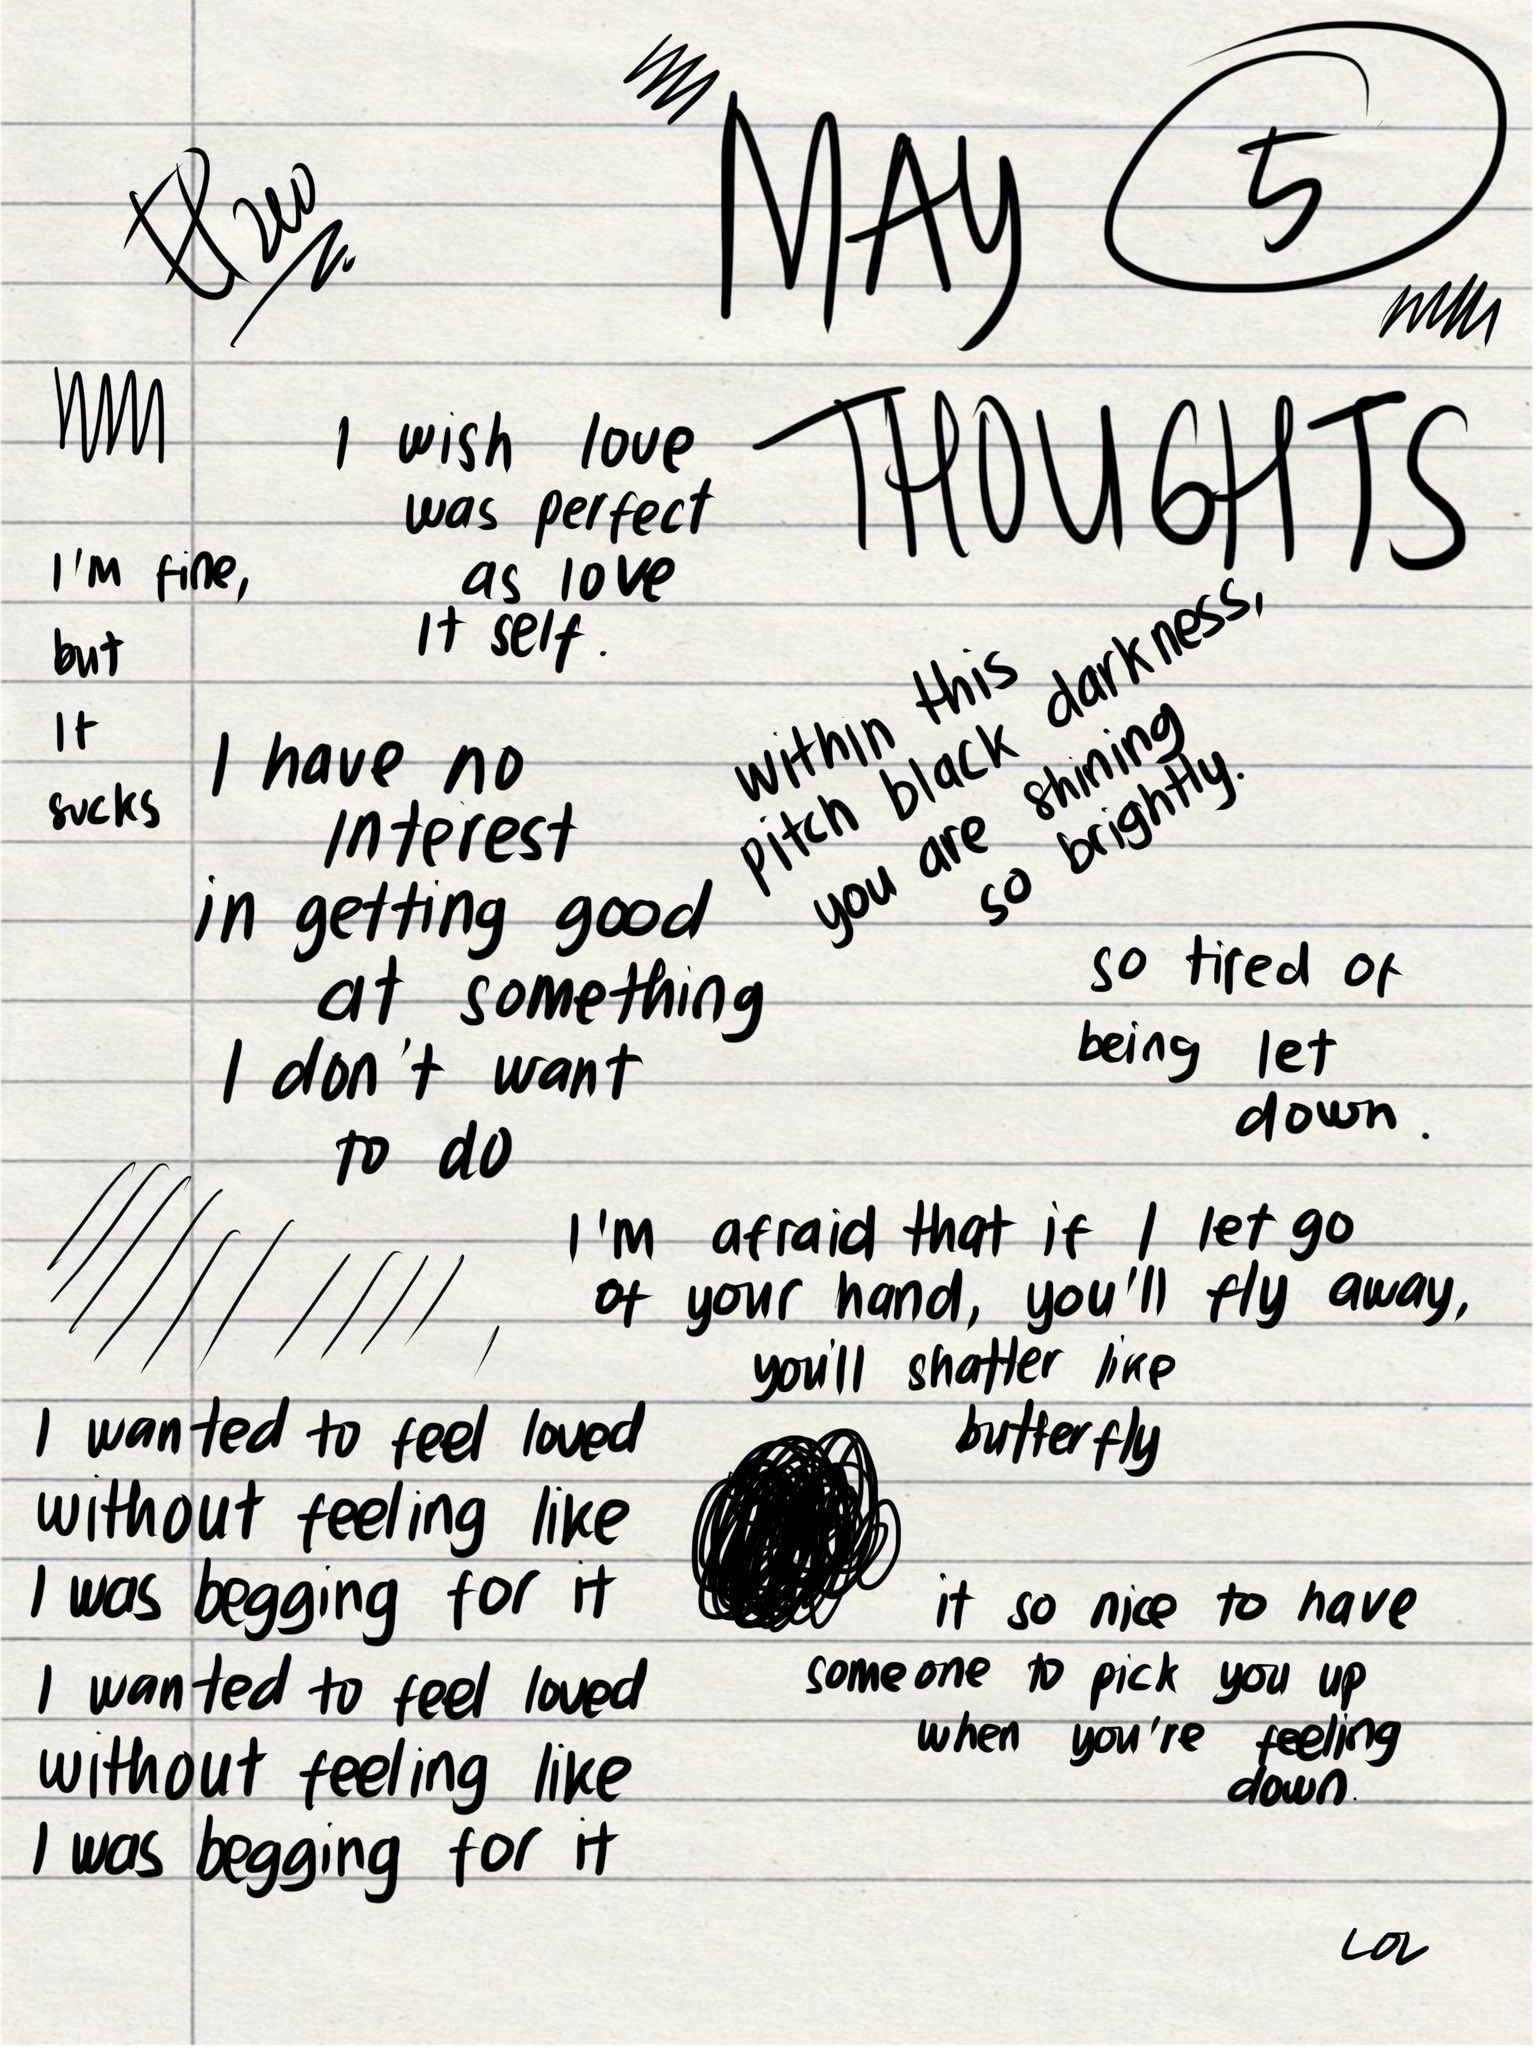 MAY 5
THOUGHTS
I wish love
was perfect
as love
it self.
I'm fine,
but
it
sucks
I have no
interest
in getting good
at something
I don't want
to do
within this
pitch black darkness,
you are shining
so brightly.
so tired of
being let
down.
I'm afraid that if I let go
of your hand, you'll fly away,
you'll shatter like
butterfly
I wanted to feel loved
without feeling like
I was begging for it
I wanted to feel loved
without feeling like
I was begging for it
it so nice to have
someone to pick you up
when you're feeling
down.
LOL